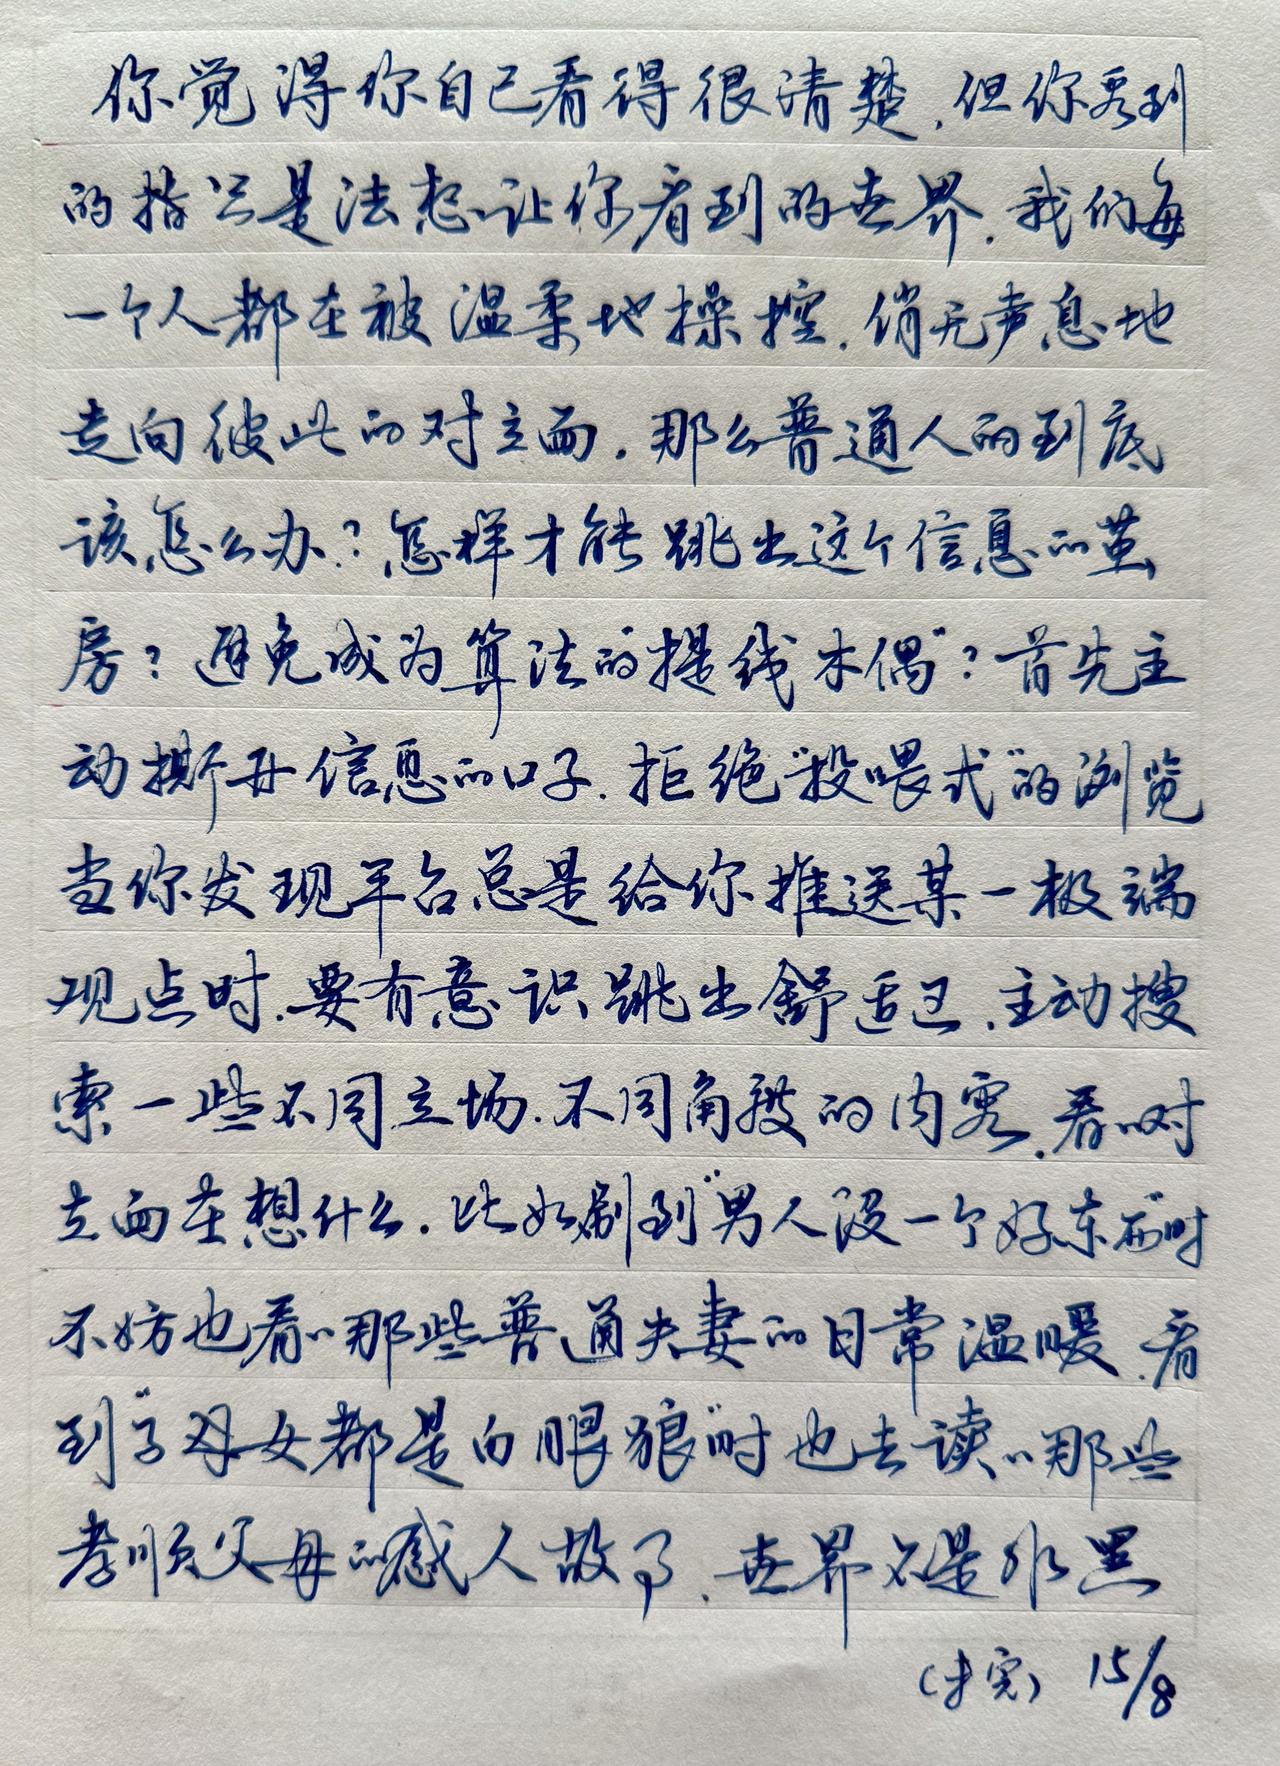 你觉得你自己看得很清楚，但你看到
的指只是法想让你看到的世界，我们每
一个人都在被温柔地操控，悄无声息地
走向彼此的对立面。那么普通人的到底
该怎么办？怎样才能跳出这个信息的茧
房？避免成为算法的“提线木偶”？首先主
动撕开信息的口子，拒绝“投喂式”的浏览
当你发现平台总是给你推送某一极端
观点时，要有意识跳出舒适区，主动搜
索一些不同立场，不同角度的内容，看看对
立面在想什么。比如刷到“男人没一个好东西”时
不妨也看看那些普通夫妻的日常温暖，看
到“子女都是白眼狼”时也去读读那些
孝顺父母的感人故事，世界不是非黑
（未完） 15/8